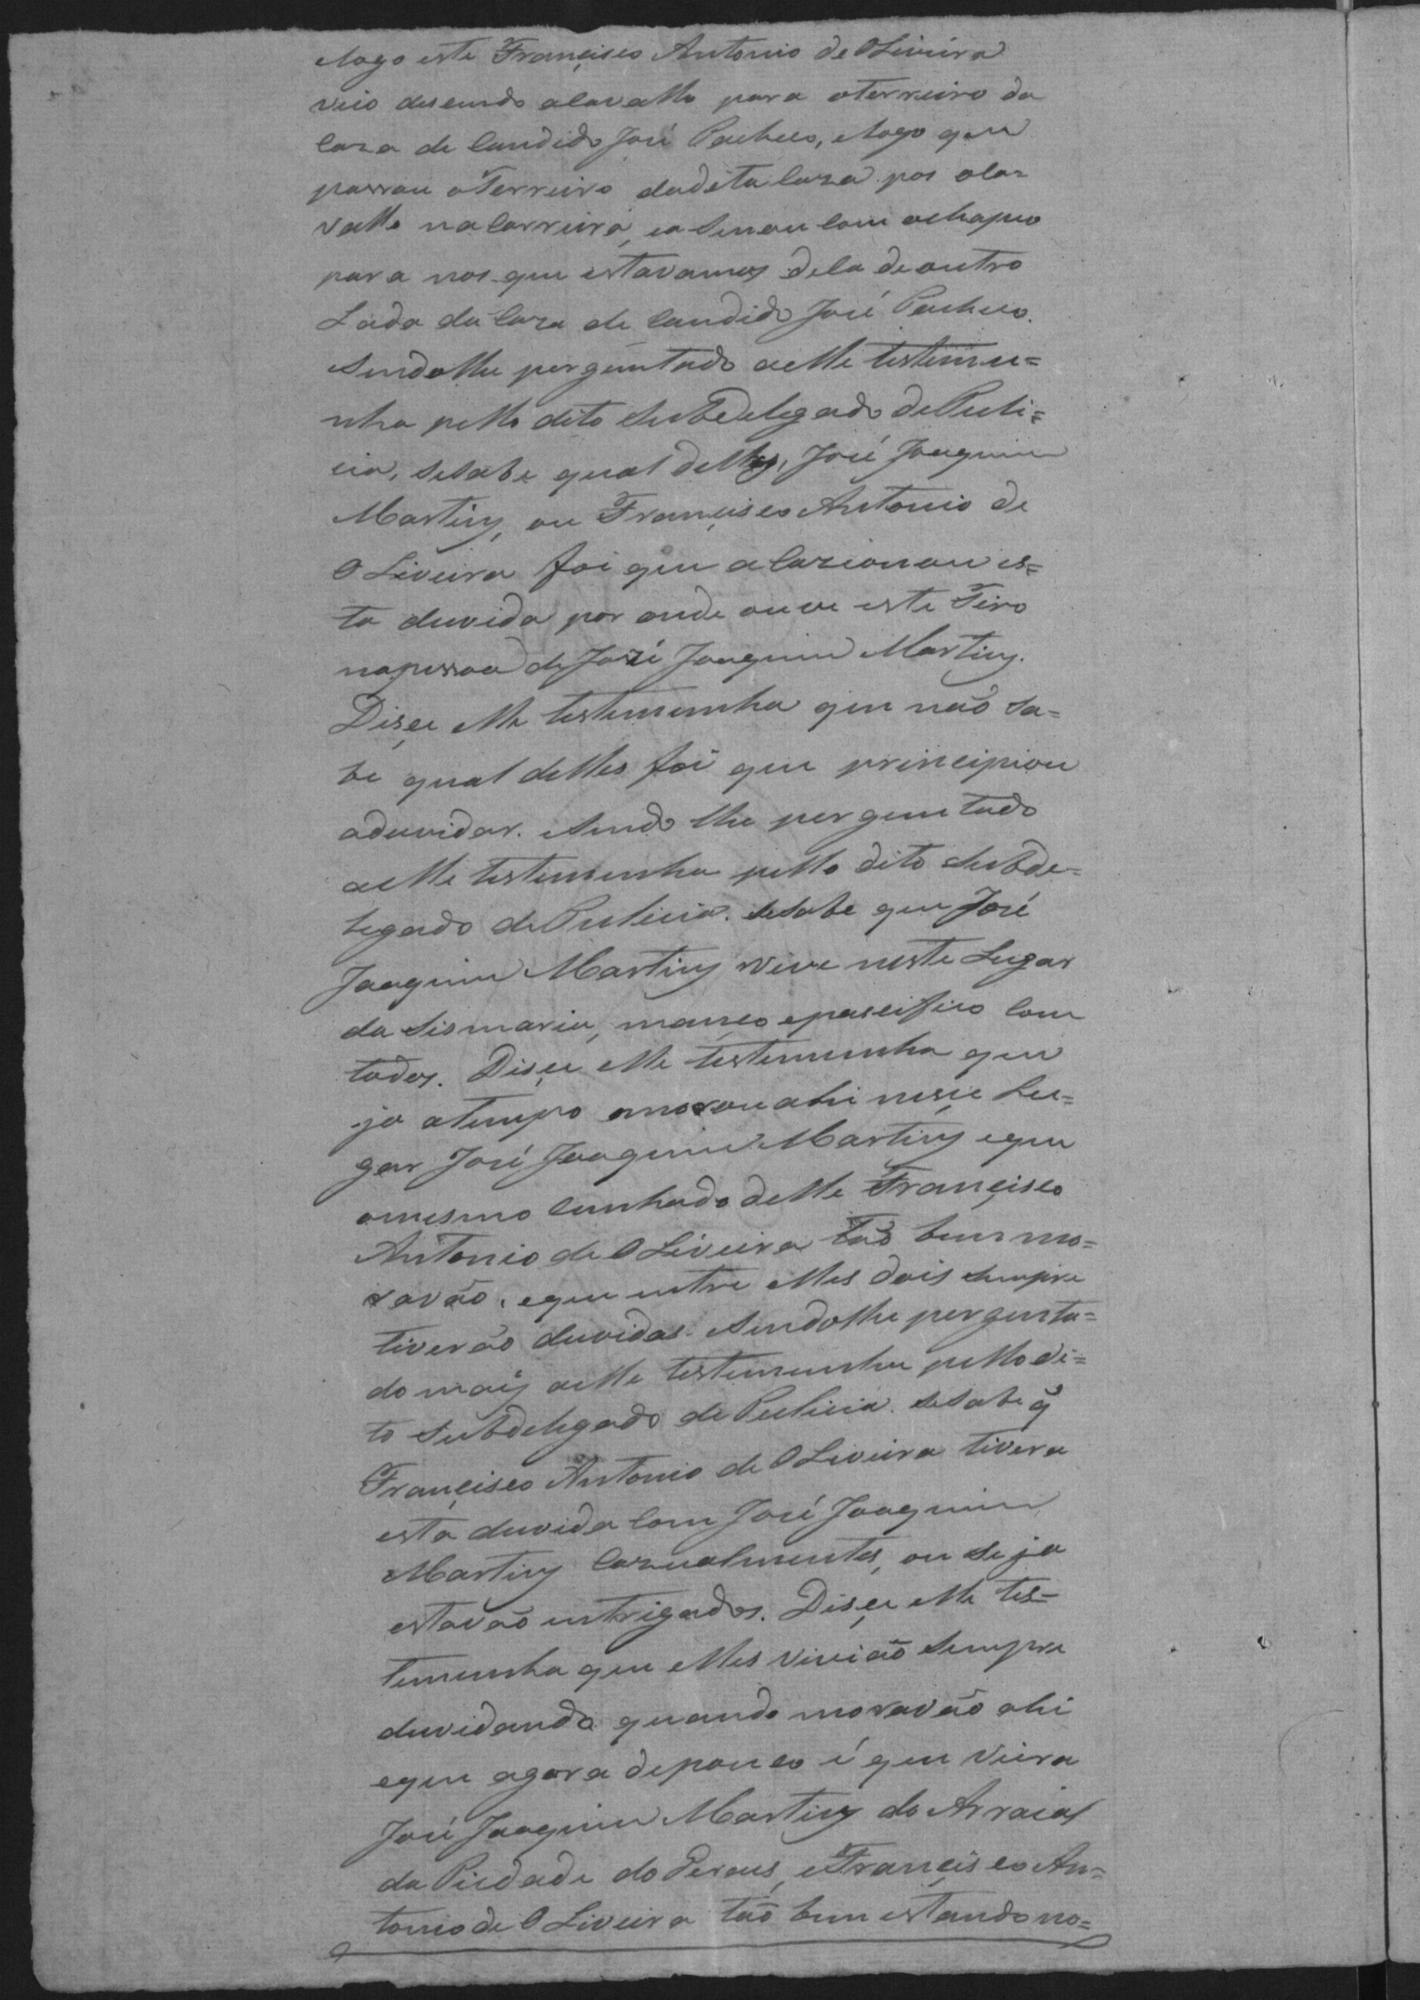 elogo este Françisco Antonio de OLiveira
veio desendo acavallo para oterreiro da
Caza de Candido José Pacheco, elogo que
passou oTerreiro daditaCaza pos oca=
vallo naCarreira, easenou Com ochapeo
para nos que estavamos dela de outro
Lado da Caza de Candido José Pacheco.
Sendolhe perguntado aelle testemu=
nha pello dito SubDelegado de Puli=
cia, seSabe qual delles, José Joaquim
Martins, ou Françisco Antonio de
OLiveira foi que aCazionou es=
ta duvida por onde ouve este Tiro
napessoa de José Joaquim Martins.
Dişe elle testemunha que não Sa=
be qual delles foi que principiou
aduvidar. Sendo lhe perguntado
aelle testemunha pello dito Subde=
legado de Pulicia. seSabe que José
Joaquim Martins vive neste Lugar
da Sismaria, manço epascifico Com
todos. Dişe elle testemunha que
ja atempo morou ahi nesse Lu=
gar José Joaquim Martins eque
omesmo Cunhado delle Françisco
Antonio de OLiveira tão bem mo=
ravão, eque entre elles dois Sempre
tiverão duvidas. Sendolhe pergunta=
do mais aelle testemunha pello di=
to Subdelegado de Pulicia. seSabe q̃
Françisco Antonio de OLiveira tivera
esta duvida Com José Joaquim
Martins Cazualmentes, ou Se ja
estavão intrigados. Dişe elle tes=
temunha que elles vivião Sempre
duvidando quando moravão ahi
eque agora depouco é que viera
José Joaquim Martins do Arraial
da Piedade do Peraus, eFrançisco An=
tonio de OLiveira tão bem estando no=